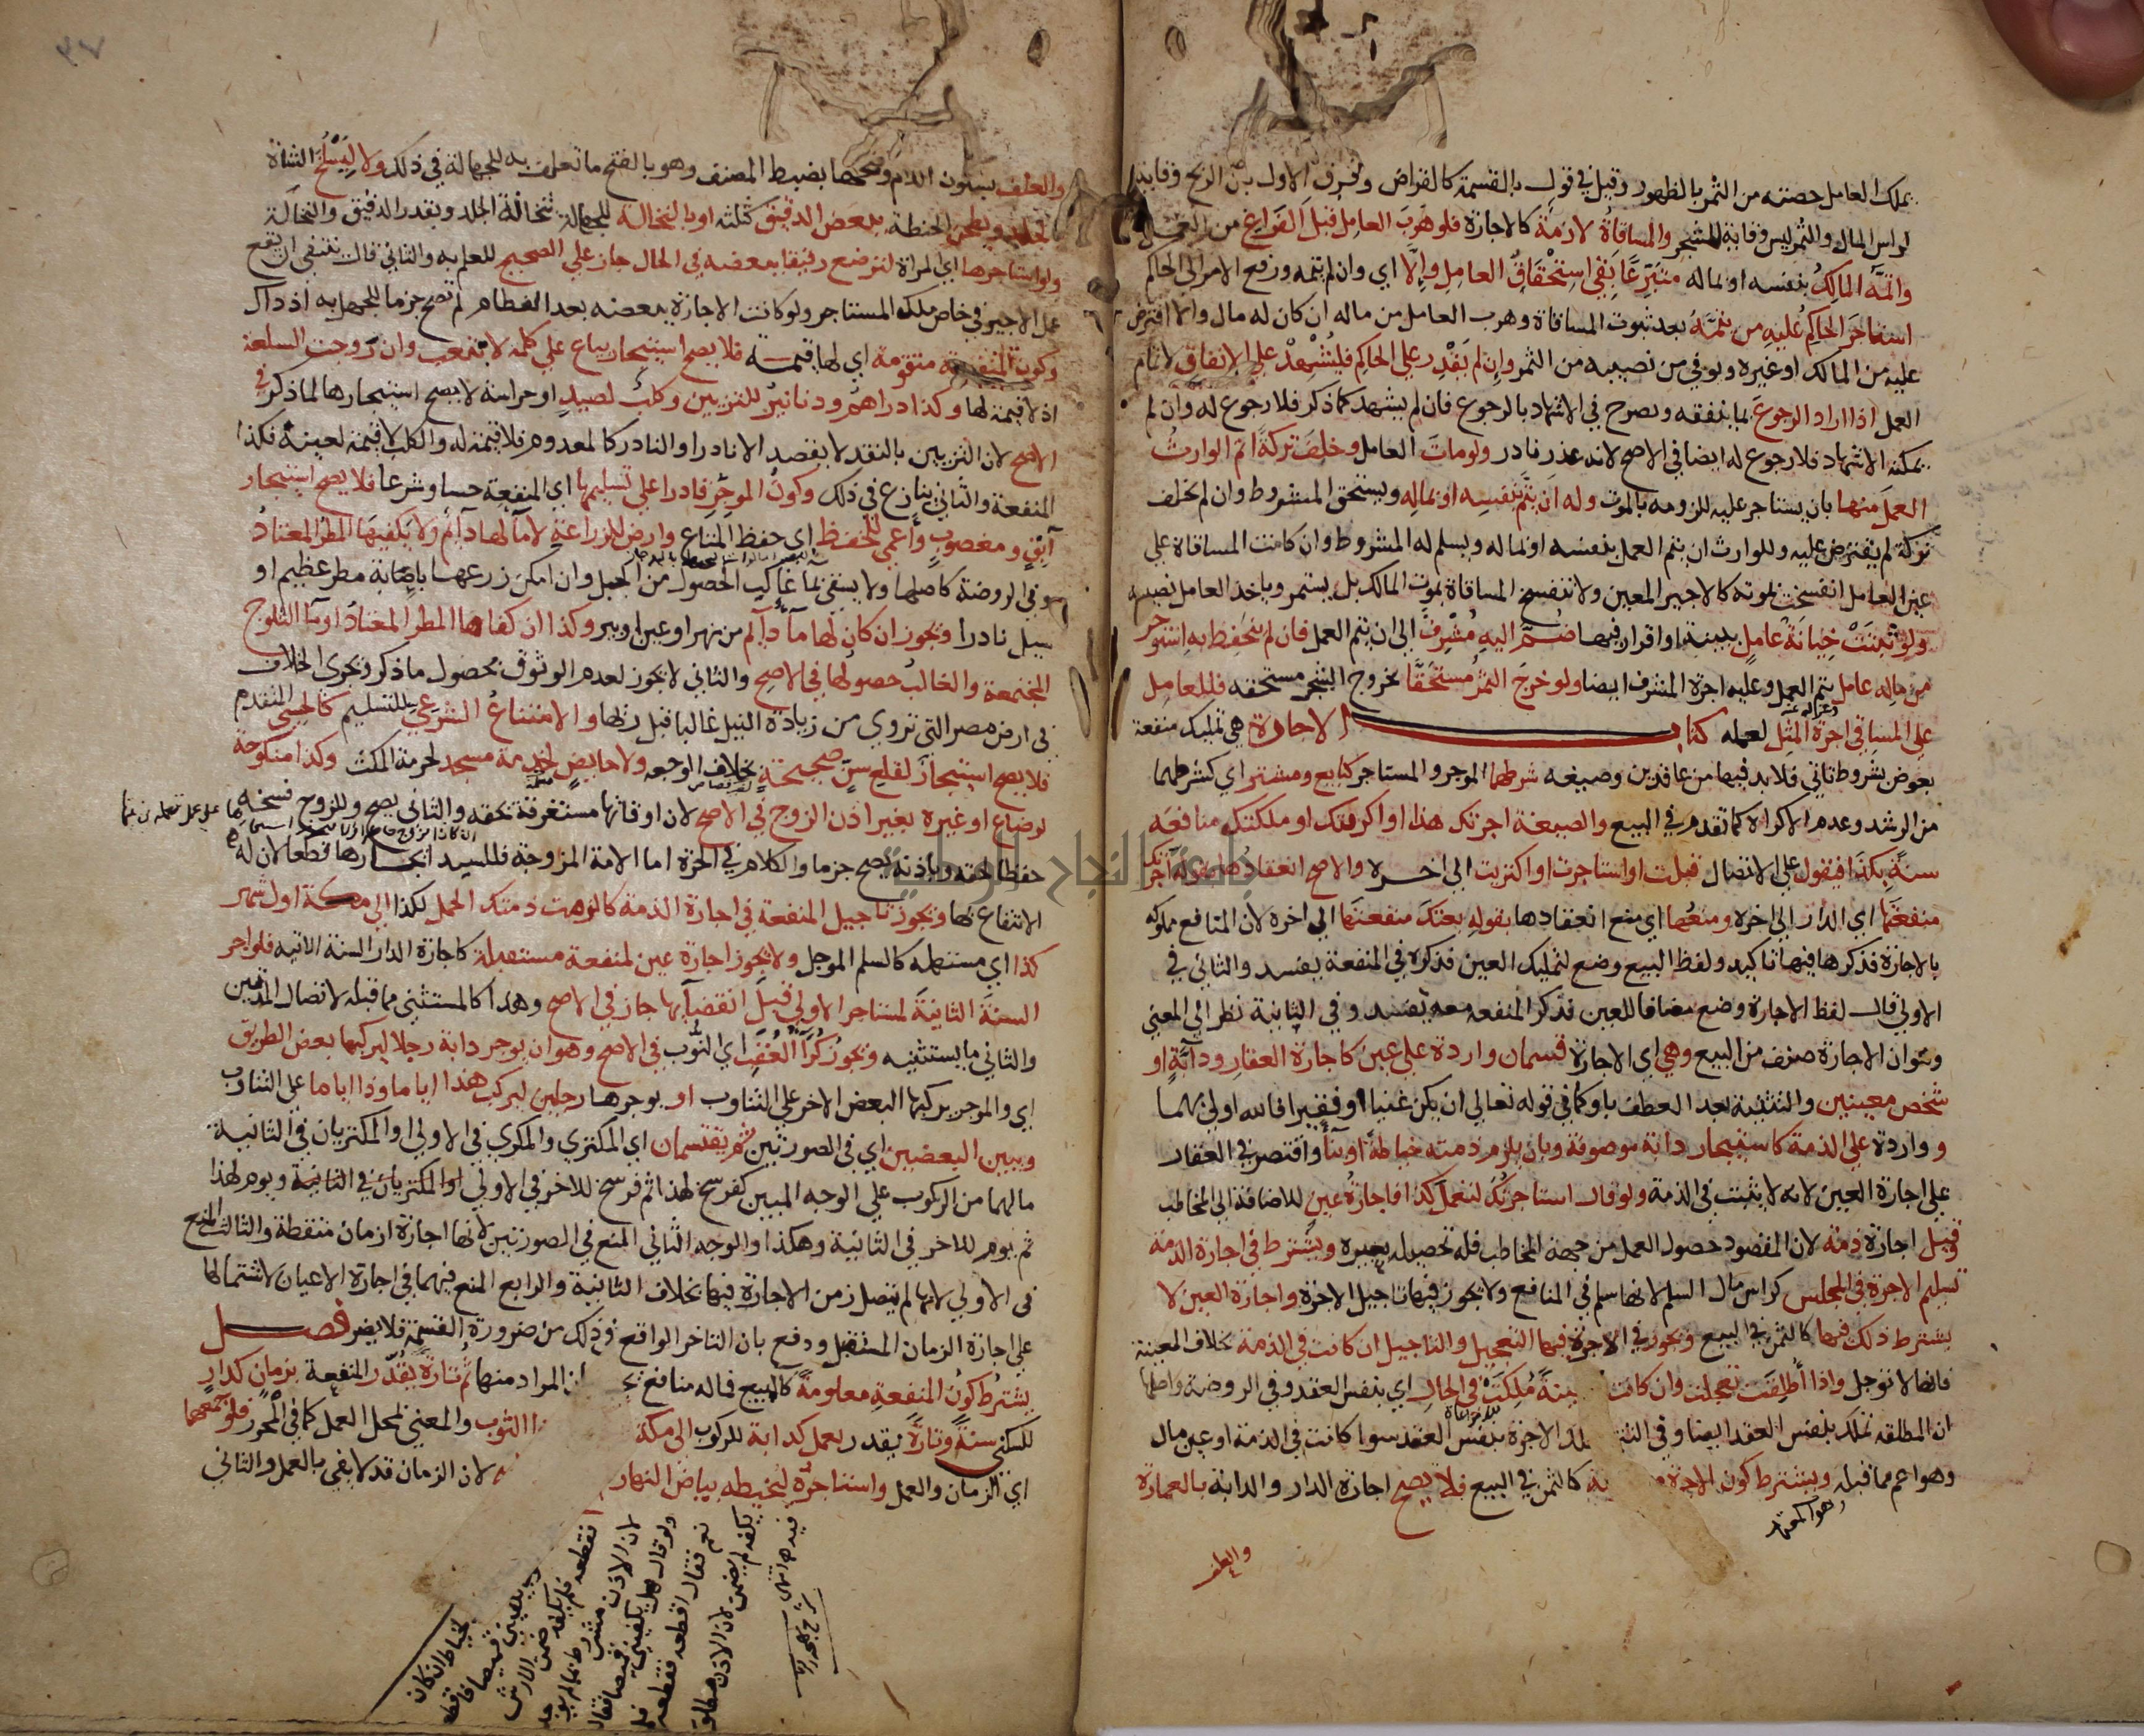 يملك العامل حصته من الثمر بالظهور وقيل في قول بالقسمة كالقراض وفرق الاول بان الربح وقاية
لراس المال والثمر ليس وقاية للشجر والمساقاة لازمة كالاجارة فلو هرب العامل قبل الفراغ من العمل
واتمه المالك بنفسه او بماله متبرعا بقي استحقاق العامل والا اي وان لم يتمه ورفع الامر الى الحاكم
استاجر الحاكم عليه من يتمه بعد ثبوت المساقاة وهرب العامل من ماله ان كان له مال والا اقترض
عليه من المالك او غيره ويوفي من نصيبه من الثمر وان لم يقدر على الحاكم فليشهد على الانفاق لاتمام
العمل اذا اراد الرجوع بما ينفقه ويصرح في الاشهاد بالرجوع فان لم يشهد كما ذكر فلا رجوع له وان لم
يمكنه الاشهاد فلا رجوع له ايضا في الاصح لانه عذر نادر ولو مات العامل وخلف تركة اتم الوارث
العمل منها بان يستاجر عليه للزومه بالموت وله ان يتم بنفسه او بماله ويستحق المشروط وان لم يخلف
تركة لم يقترض عليه وللوارث ان يتم العمل بنفسه او بماله ويسلم له المشروط وان كانت المساقاة على
عين العامل انفسخت بموته كالاجير المعين ولا تنفسخ المساقاة بموت المالك بل يستمر وياخذ العامل نصيبه
ولو ثبتت خيانة عامل ببينة او اقرار فيها ضم اليه مشرف الى ان يتم العمل فان لم يتحفظ به استوجر
من ماله عامل يتم العمل وعليه اجرة المشرف ايضا ولو خرج الثمر مستحقا بخروج الشجر مستحقه فللعامل
على المساقي اجرة المثل لعمله كتاب الاجارة هي تمليك منفعة
بعوض بشروط تاتي فلا بد فيها من عاقدين وصيغه شرطهما الموجر والمستاجر كبايع ومشتر اي كشرطهما
من الرشد وعدم الاكراه كما تقدم في البيع والصيغة اجرتك هذا او اكريتك او ملكتك منافعه
سنة بكذا فيقول على الاتصال قبلت او استاجرت او اكتريت الى اخره والاصح انعقادها بقوله اجرتك
منفعتها اي الدار الى اخره ومنعها اي منع انعقادها بقوله بعتك منفعتها الى اخره لان المنافع مملوكه
بالاجارة فذكرها فيها تاكيد ولفظ البيع وضع لتمليك العين فذكره في المنفعة يفسد والثاني في
الاولى قال لفظ الاجارة وضع مضافا للعين فذكر المنفعه معه يفسد وفي الثانية نظر الى المعنى
وهو ان الاجارة صنف من البيع وهي اي الاجارة قسمان واردة على عين كاجارة العقار ودابة او
شخص معينين والتثنية بعد العطف باو كما في قوله تعالى ان يكن غنيا او فقيرا فالله اولى بهما
وواردة على الذمة كاستيجار دابة موصوفة وبان يلزم ذمته خياطة او بناء واقتصر في العقار
على اجارة العين لانه لا يثبت في الذمة ولو قال استاجرتك لتعمل كذا فاجارة عين للاضافة الى المخاطب
وقيل اجارة ذمة لان المقصود حصول العمل من جهة المخاطب فله تحصيله بغيره ويشترط في اجارة الذمة
تسليم الاجرة في المجلس كراس مال السلم لانها سلم في المنافع ولا يجوز فيها تاجيل الاجرة واجارة العين لا
يشترط ذلك فيها كالثمن في البيع ويجوز في الاجرة فيها التعجيل والتاجيل ان كانت في الذمة بخلاف المعينة
فانها لا توجل واذا اطلقت تعجلت وان كانت ... ينة ملكت في الحال اي بنفس العقد وفي الروضة واصلها
ان المطلقه تملك بنفس العقد ايضا وفي ... الاجرة بنفس العقد سوا كانت في الذمة او عين مال
وهو اعم مما قبله ويشترط كون الاجرة ... كالثمن في البيع فلا يصح اجارة الدار والدابة بالعمارة
وهو المعتمد
والعلف
والعلف بسكون اللام وفتحها بضبط المصنف وهو بالفتح ما تعلف به للجهالة في ذلك ولا ليسلخ الشاة
بالجلد ويطحن الحنطة ببعض الدقيق كثلثه او بالنخالة للجهالة بثخانة الجلد وبقدر الدقيق والنخالة
ولو استاجرها اي المراة لترضع رقيقا ببعضه في الحال جاز على الصحيح للعلم به والثاني قال ينبغي ان يقع
عمل الاجير في خاص ملك المستاجر ولو كانت الاجارة ببعضه بعد الفطام لم تصح جزما للجهل به اذ ذاك
وكون المنفعة متقومة اي لها قيمة فلا يصح استيجار بياع على كلمة لا تتعب وان روجت السلعة
اذ لا قيمة لها وكذا دراهم ودنانير للتزيين وكلب لصيد او حراسة لا يصح استيجارها لما ذكر في
الاصح لان التزيين بالنقد لا يقصد الا نادرا والنادر كالمعدوم فلا قيمة له والكلب لا قيمة لعينه فكذا
المنفعة والثاني ينازع في ذلك وكون الموجر قادرا على تسليمها اي المنفعة حسا وشرعا فلا يصح استيجار
آبق ومغصوب واعمى للحفظ اي حفظ المتاع وارض للزراعة لا ماء لها دايم ولا يكفيها المطر المعتاد
وفي الروضة كاصلها ولا يسقى بما غالب الحصول من الجبل وان امكن زرعها باصابة مطر عظيم او
سيل نادرا ويجوز ان كان لها ماء دايم من نهر او عين او بير وكذا ان كفاها المطر المعتاد او ماء الثلوج
المجتمعة والغالب حصولها في الاصح والثاني لا يجوز لعدم الوثوق بحصول ما ذكر ويجرى الخلاف
في ارض مصر التي تروى من زيادة النيل غالبا قبل ريها والامتناع الشرعي للتسليم كالحسي المتقدم
فلا يصح استيجار لقلع سن صحيحة بخلاف الوجعه ولا حايض لخدمة مسجد لحرمة المكث وكذا منكوحة
لرضاع او غيره بغير اذن الزوج في الاصح لان اوقاتها مستغرقة بحقه والثاني يصح وللزوج فسخه
حفظا لحقه وباذنه يصح جزما والكلام في الحرة اما الامة المزوجة فللسيد ايجارها قطعا لان له
الانتفاع بها ويجوز تاجيل المنفعة في اجارة الذمة كالزمت ذمتك الحمل لكذا الى مكة اول شهر
كذا اي مستهله كالسلم الموجل ولا يجوز اجارة عين لمنفعة مستقبلة كاجارة الدار السنة الاتيه فلو اجر
السنة الثانية لمستاجر الاولى قبل انقضائها جاز في الاصح وهذا كالمستثنى مما قبله لاتصال المدتين
والثاني ما يستثنيه ويجوز كراء العقب اي النوب في الاصح وهو ان يوجر دابة رجلا ليركبها بعض الطريق
اي والموجر يركبها البعض الاخر على التناوب او يوجرها رجلين ليركب هذا اياما وذا اياما على التناوب
ويبين البعضين اي في الصورتين ثم يقتسمان اي المكتري والمكري في الاولى او المكتريان في الثانية
مالهما من الركوب على الوجه المبين كفرسخ لهذا ثم فرسخ للاخر في الاولى او المكتريان في الثانية ويوم لهذا
ثم يوم للاخر في الثانية وهكذا والوجه الثاني المنع في الصورتين لانها اجارة ازمان منقطة والثالث المنع
في الاولى لانها لم يتصل زمن الاجارة فيها بخلاف الثانية والرابع المنع فيهما في اجارة الاعيان لاشتمالها
على اجارة الزمان المستقبل ودفع بان التاخر الواقع في ذلك من ضرورة القسمة فلا يضر فصل
يشترط كون المنفعة معلومة كالمبيع فماله منافع ... ان المراد منها ثم تارة يقدر المنفعة بزمان كدار
للسكنى سنة وتارة يقدر بعمل كدابة للركوب الى مكة ... الثوب والمعنى لمحل العمل كما في المحرر فلو جمعهما
اي الزمان والعمل واستاجره ليخيطه بياض النهار ... لان الزمان قد لا يفي بالعمل والثاني